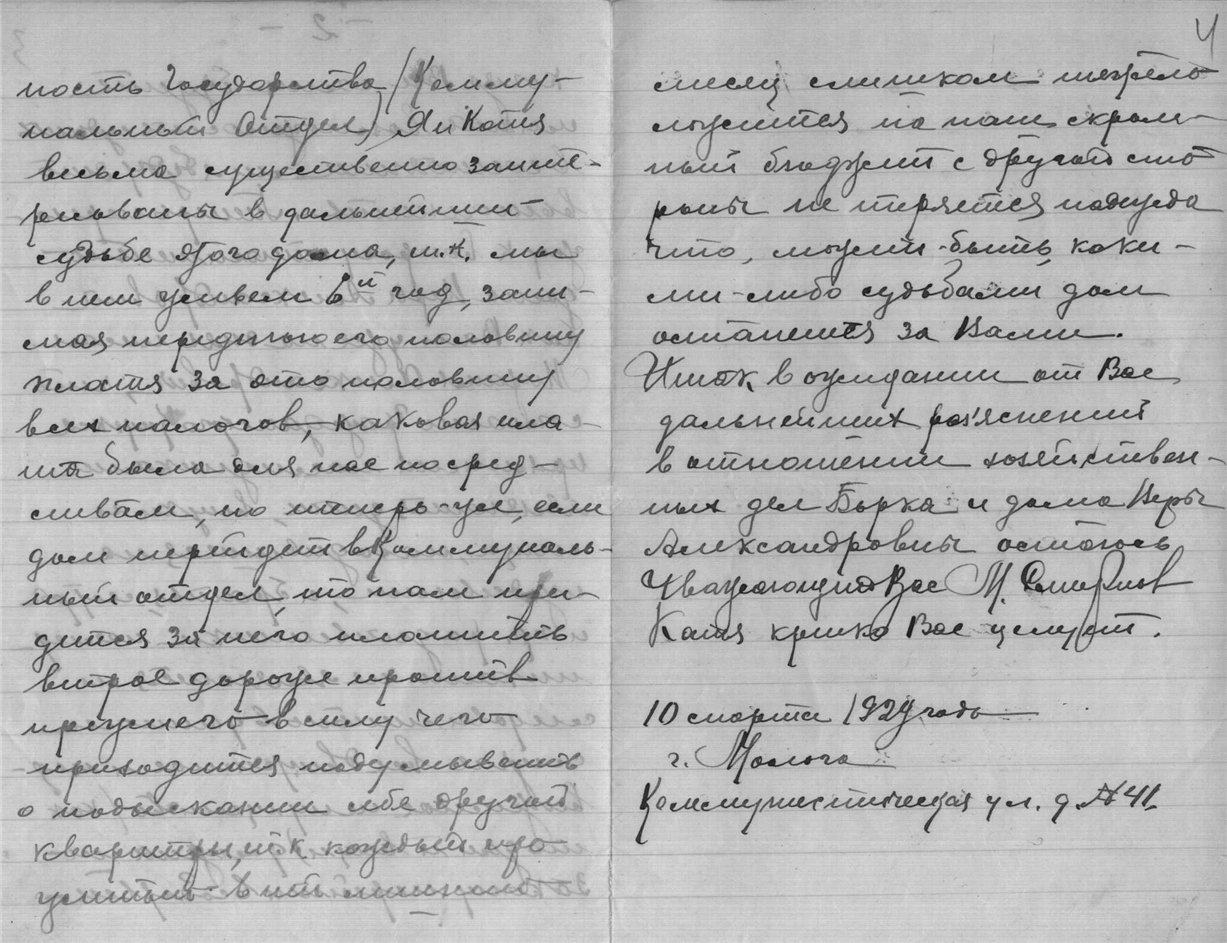 ность Государства (Комму-
нальный Отдел) Я и Катя
весьма существенно заинте-
ресованы в дальнейшей
судьбе этого дома, т.к. мы
в нем живем 6й год, зани-
мая переднюю его половину
платя за это половину
всех налогов, каковая пла-
та была для нас по сред-
ствам, но теперь-уже, если
дом перейдет в Коммуналь-
ный отдел, то нам при-
дется за него платить
втрое дороже против
прежнего в силу чего
приходится подумывать
о подыскании себе другой
квартиры, т.к. каждый про-
житый в ней лишний
4
месяц слишком тяжело
ложится на наш скром-
ный бюджет с другой сто
роны не теряется надежда
что, может-быть, каки-
ми-либо судьбами дом
останется за Вами.
Итак в ожидании от Вас
дальнейших раз'яснений
в отношении хозяйствен-
ных дел Борка и дома Веры
Александровны остаюсь
Уважающий Вас М. Смирнов
Катя крепко Вас целует.
10 марта 1929 года
г. Молога
Коммунистическая ул. д. № 41.